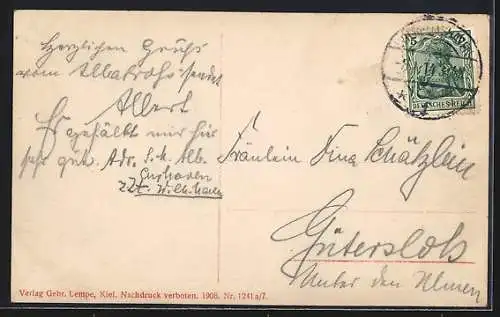 Herzlichen Gruß
vom Albatross sendet
Albert
Es gefällt mir hier
sehr gut. Adr. S. M. Alb.
Cuxhaven
z. Zt. Wilh.haven
DEUTSCHES REICH
Fräulein Tina Schätzlein
Gütersloh
Unter den Ulmen
Verlag Gebr. Lempe, Kiel. Nachdruck verboten. 1908. Nr. 1241a/7.